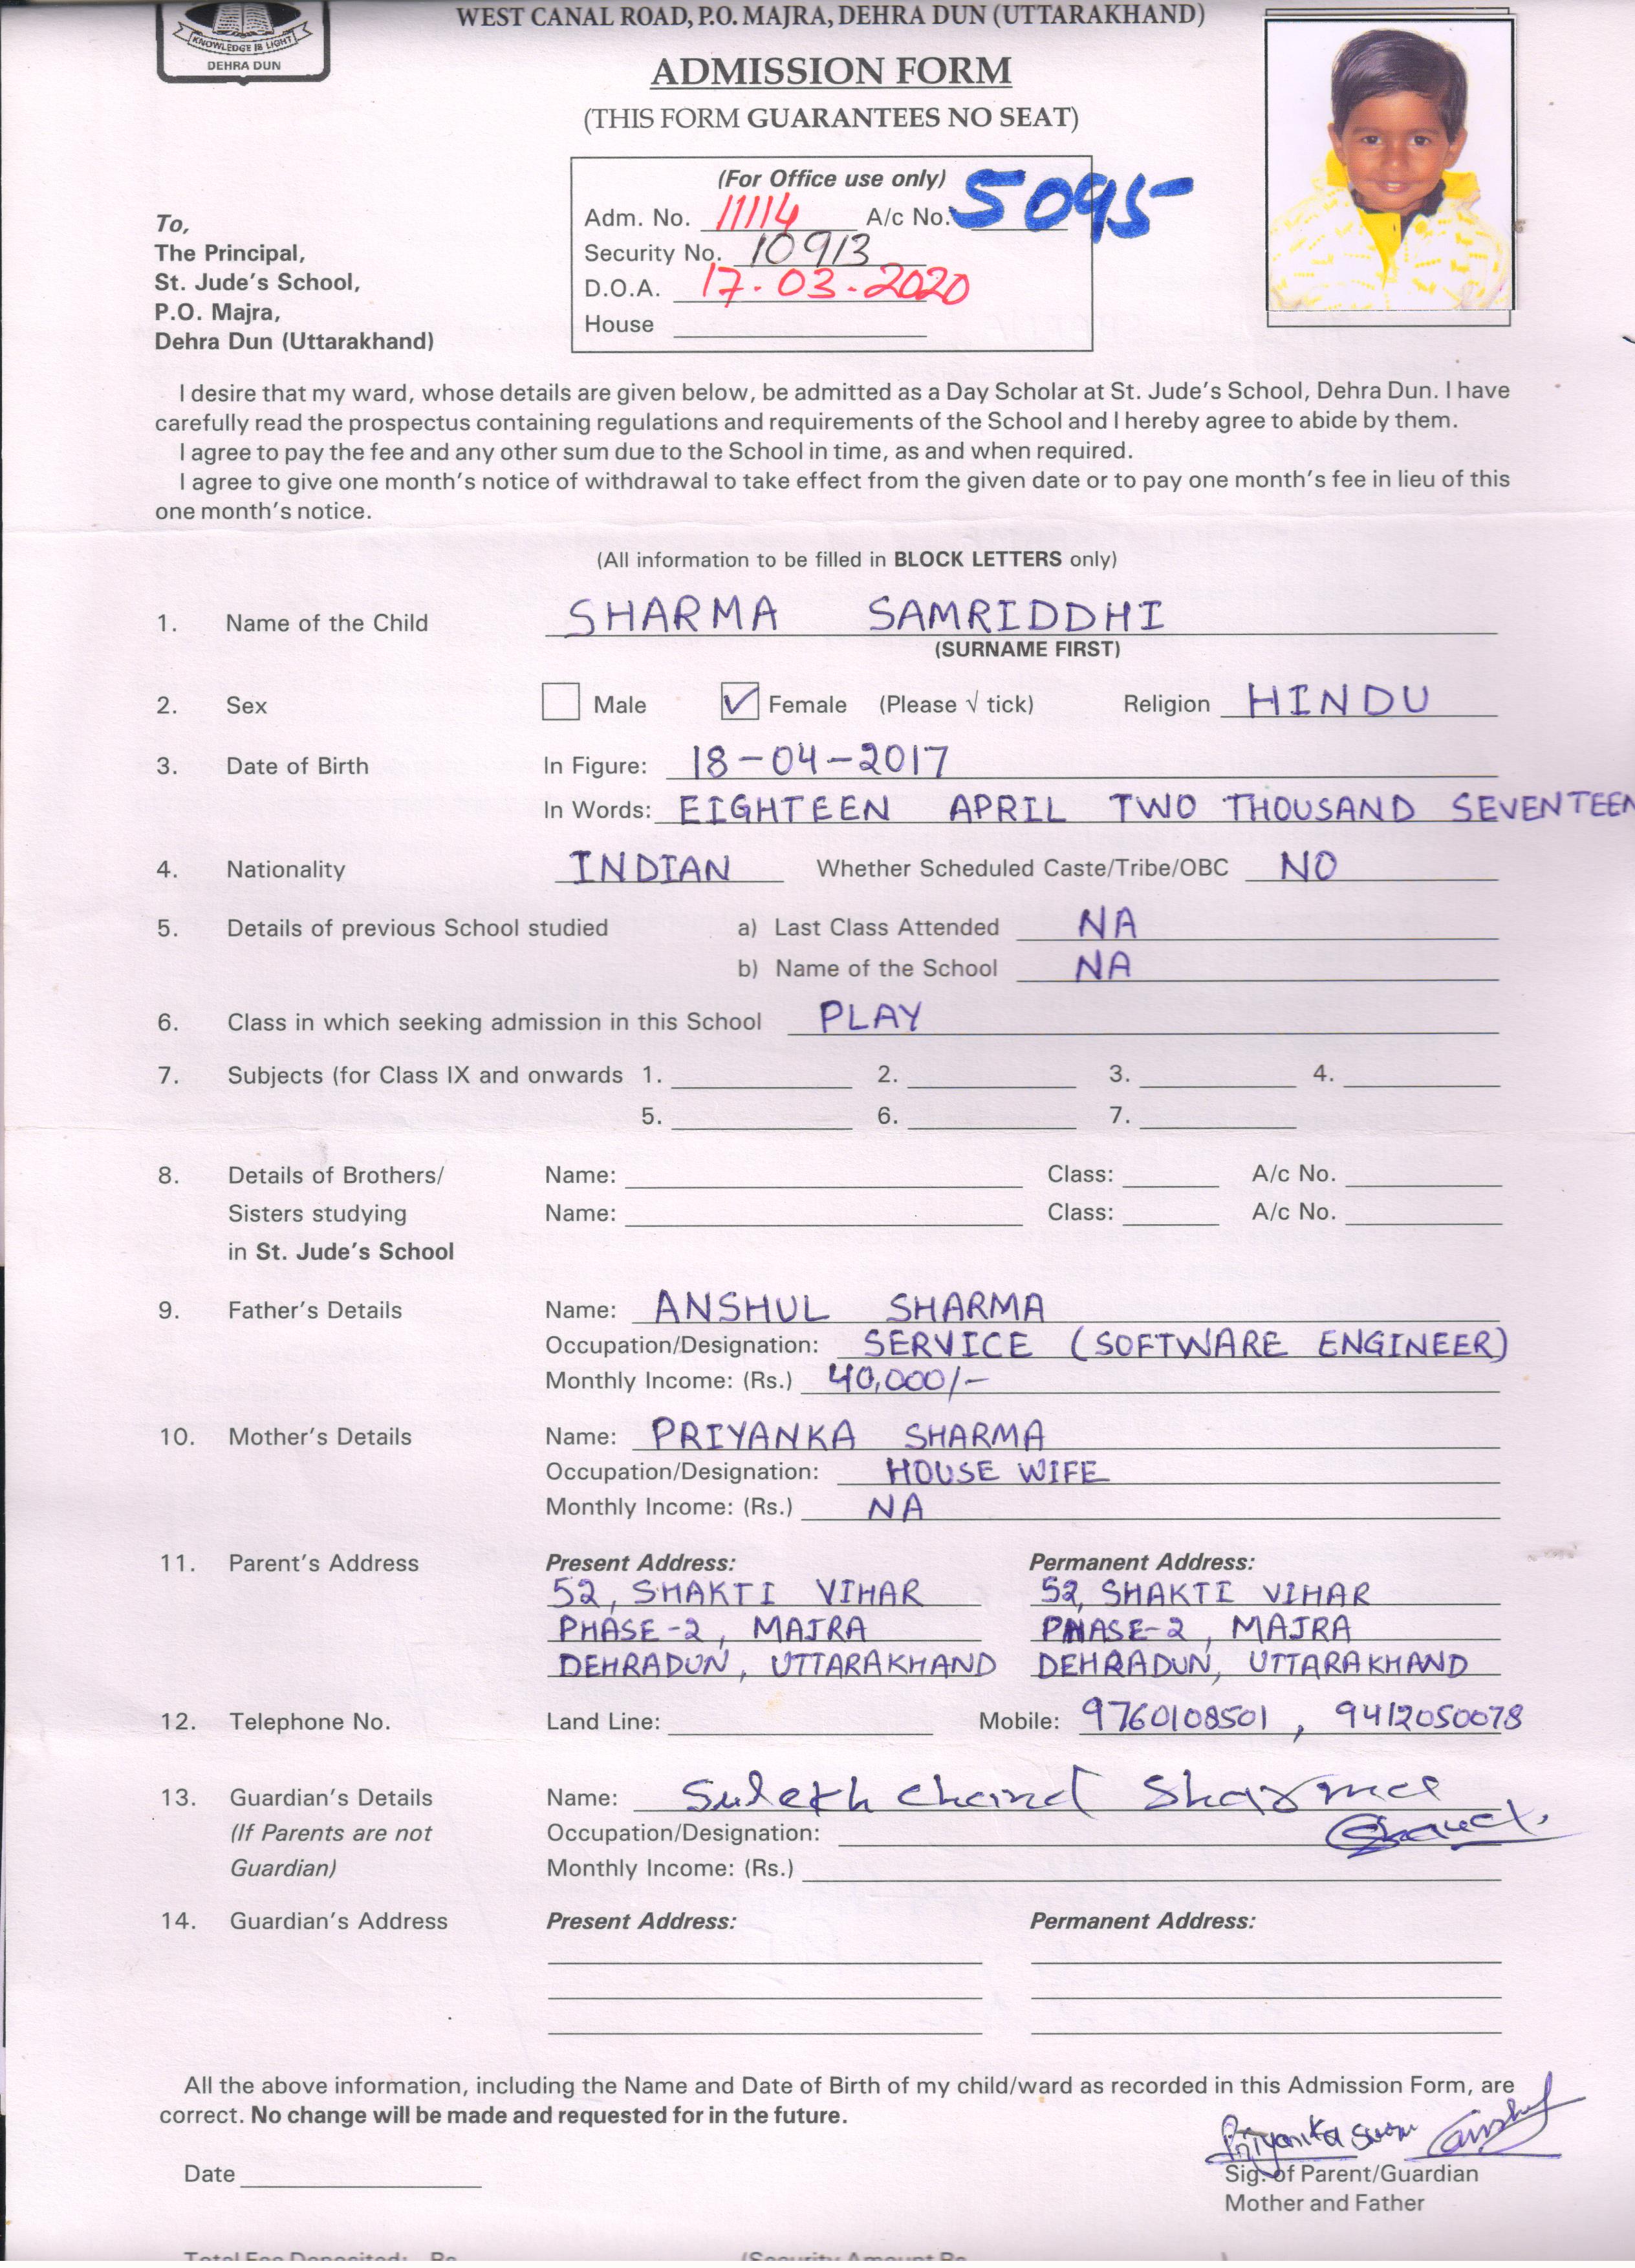 KNOWLEDGE IS LIGHT
DEHRA DUN
WEST CANAL ROAD, P.O. MAJRA, DEHRA DUN (UTTARAKHAND)
ADMISSION FORM
(THIS FORM GUARANTEES NO SEAT)
(For Office use only)
Adm. No. 11114 A/c No. 5095
Security No. 10913
D.O.A. 17.03.2020
House
To,
The Principal,
St. Jude's School,
P.O. Majra,
Dehra Dun (Uttarakhand)
I desire that my ward, whose details are given below, be admitted as a Day Scholar at St. Jude's School, Dehra Dun. I have
carefully read the prospectus containing regulations and requirements of the School and I hereby agree to abide by them.
I agree to pay the fee and any other sum due to the School in time, as and when required.
I agree to give one month's notice of withdrawal to take effect from the given date or to pay one month's fee in lieu of this
one month's notice.
(All information to be filled in BLOCK LETTERS only)
1. Name of the Child SHARMA SAMRIDDHI
(SURNAME FIRST)
2. Sex Male ✓ Female (Please √ tick) Religion HINDU
3. Date of Birth In Figure: 18-04-2017
In Words: EIGHTEEN APRIL TWO THOUSAND SEVENTEEN
4. Nationality INDIAN Whether Scheduled Caste/Tribe/OBC NO
5. Details of previous School studied a) Last Class Attended NA
b) Name of the School NA
6. Class in which seeking admission in this School PLAY
7. Subjects (for Class IX and onwards 1. 2. 3. 4.
5. 6. 7.
8. Details of Brothers/ Name: Class: A/c No.
Sisters studying Name: Class: A/c No.
in St. Jude's School
9. Father's Details Name: ANSHUL SHARMA
Occupation/Designation: SERVICE (SOFTWARE ENGINEER)
Monthly Income: (Rs.) 40,000/-
10. Mother's Details Name: PRIYANKA SHARMA
Occupation/Designation: HOUSE WIFE
Monthly Income: (Rs.) NA
11. Parent's Address Present Address: Permanent Address:
52, SHAKTI VIHAR 52, SHAKTI VIHAR
PHASE-2, MAJRA PHASE-2, MAJRA
DEHRADUN, UTTARAKHAND DEHRADUN, UTTARAKHAND
12. Telephone No. Land Line: Mobile: 9760108501, 9412050078
13. Guardian's Details Name: Sulekh Chand Sharma
(If Parents are not Occupation/Designation:
Guardian) Monthly Income: (Rs.)
14. Guardian's Address Present Address: Permanent Address:
All the above information, including the Name and Date of Birth of my child/ward as recorded in this Admission Form, are
correct. No change will be made and requested for in the future.
Priyanka
Date Sig. of Parent/Guardian
Mother and Father
Total Fee Deposited: Rs. (Security Amount Rs. )